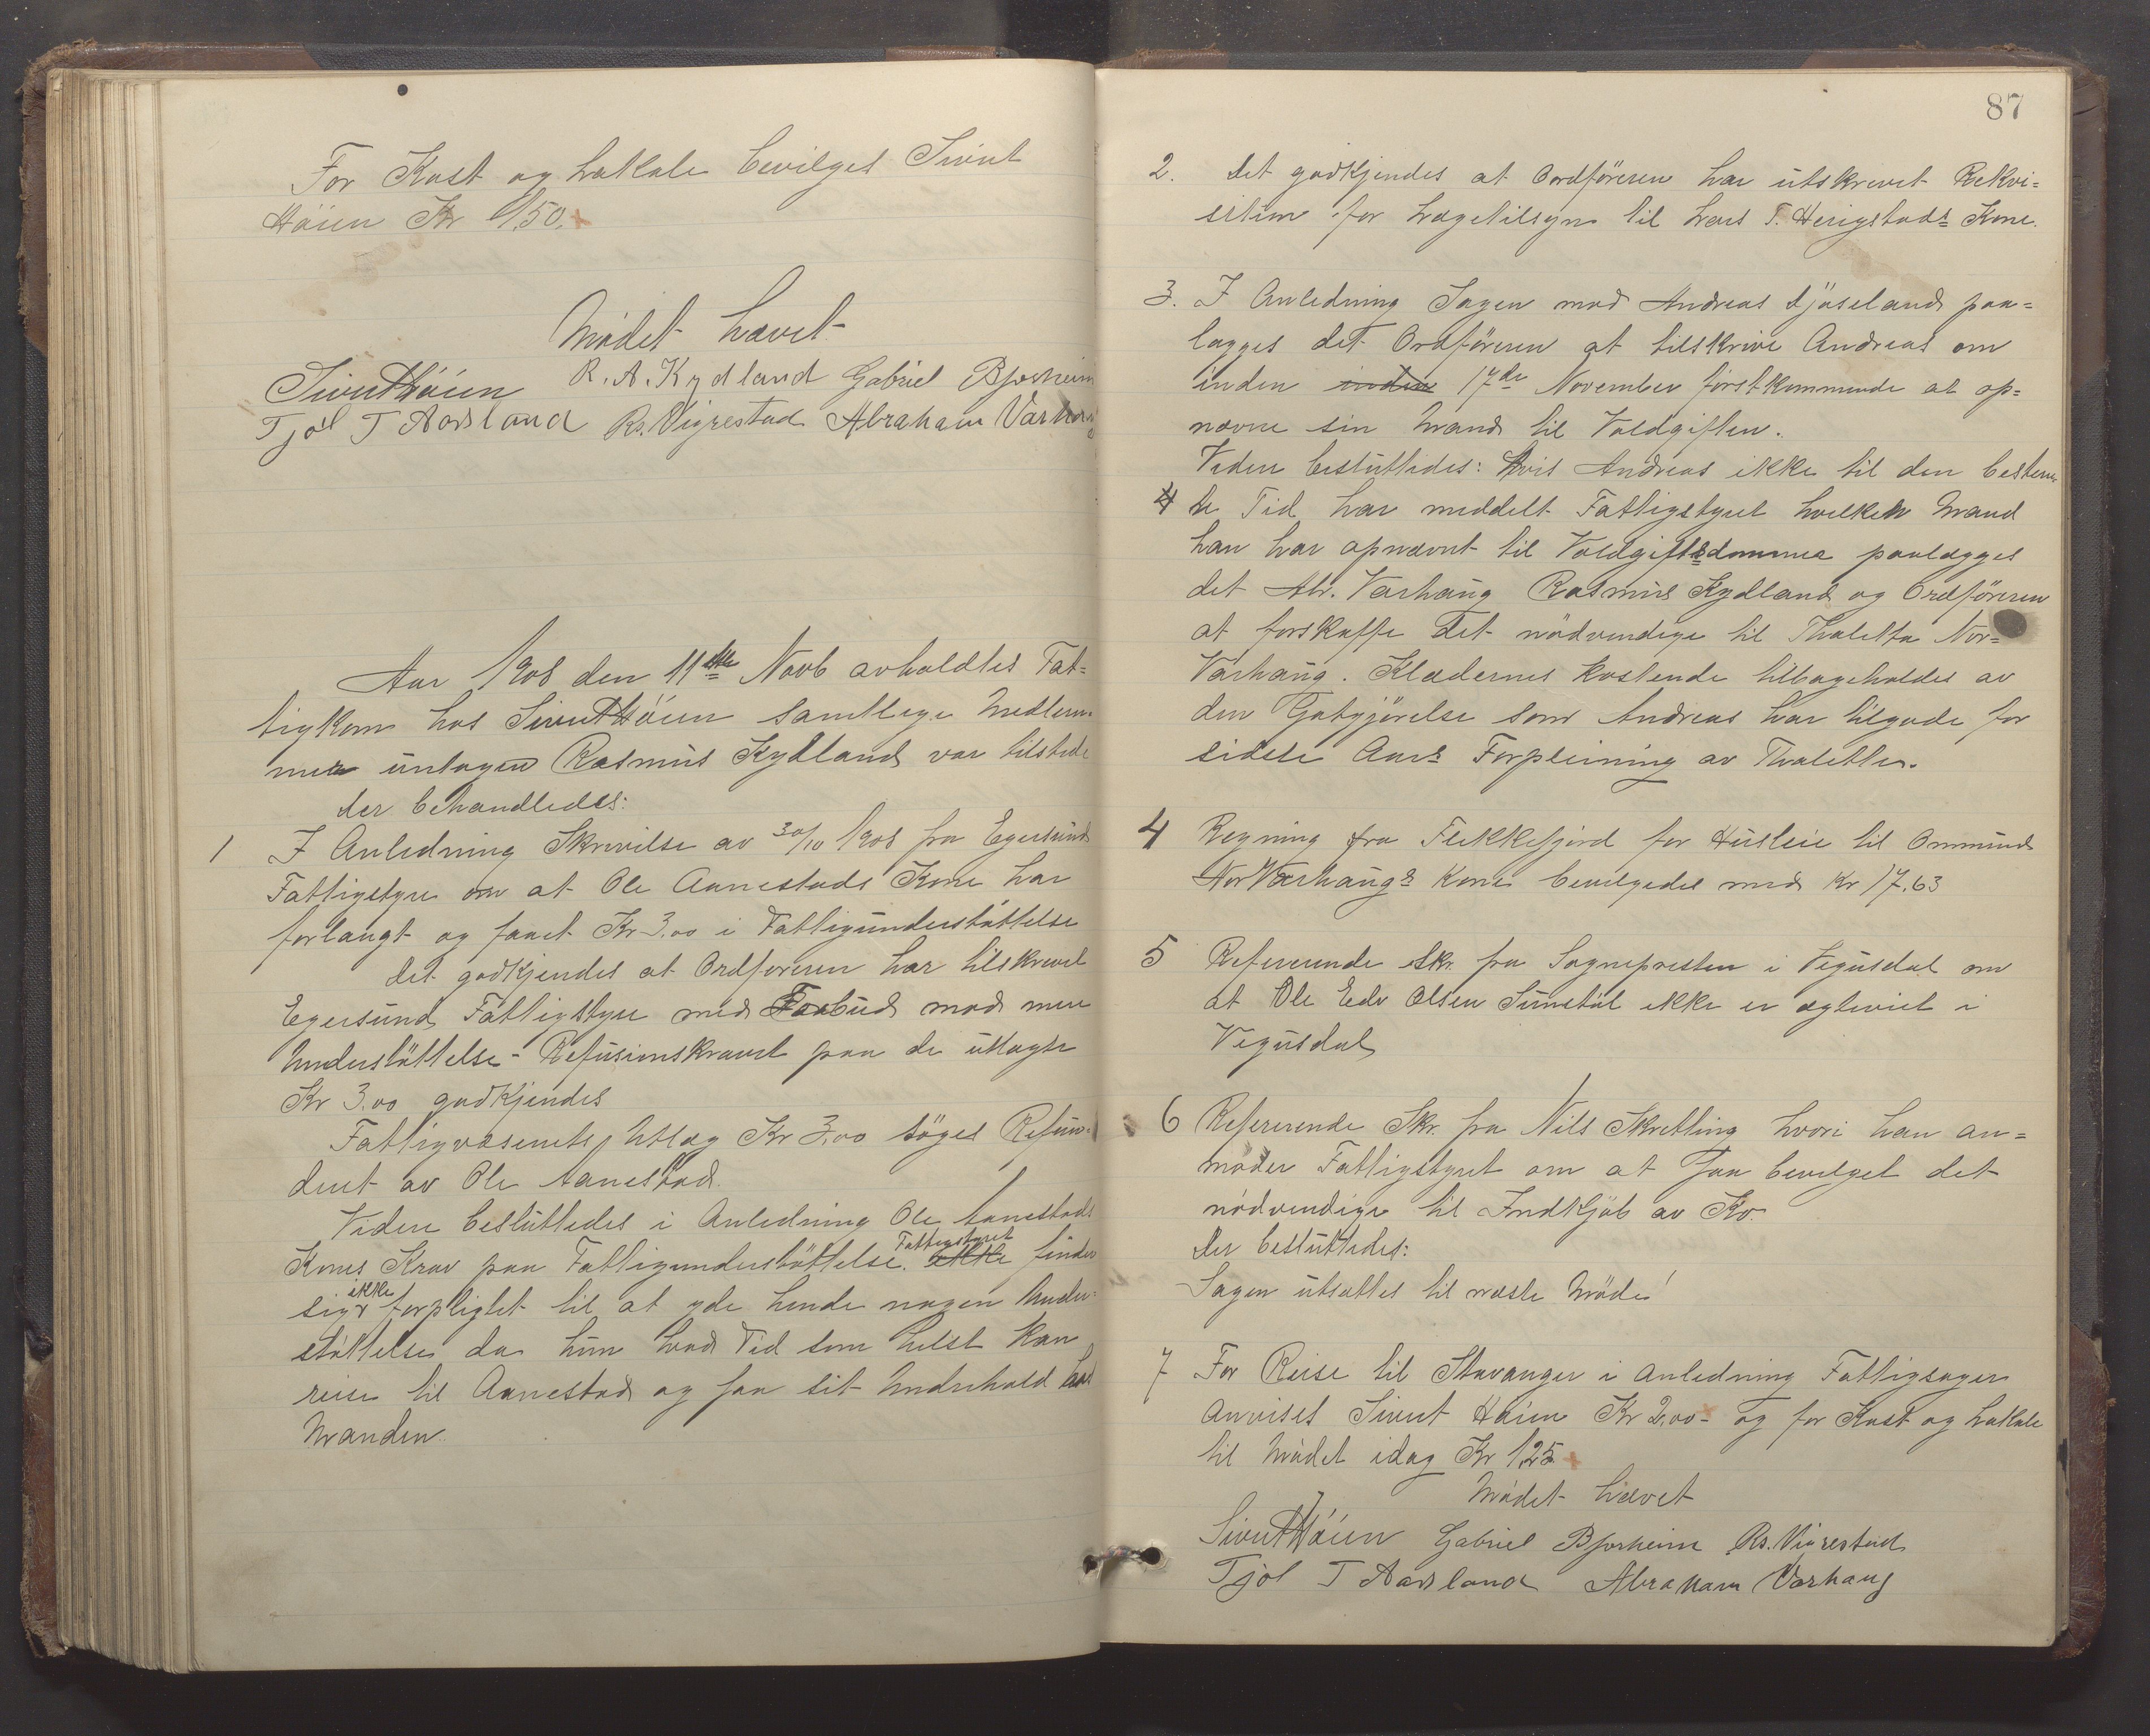 For Kost og Lokale bevilges Sivert
Höien Kr 1.50.
Mödet hævet
Sivert Höien R. A. Kydland Gabriel Bjorheim
Tjöl T Aarsland Rs. Vigrestad Abraham Varhaug
Aar 1908 den 11te Novb avholdtes Fat=
tigkom hos Sivert Höien samtlige Medlem-
mer untagen Rasmus Kydland var tilstede
der behandledes:
1 I Anledning Skrivelse av 30/10 1908 fra Egersund
Fattigstyre om at Ole Aanestads Kone har
forlangt og faaet Kr 3.00 i Fattigunderstöttelse
Det godkjendes at Ordföreren har tilskrevet
Egersund Fattigstyre med Forbud mod mere
Understöttelse - Refusionskravet paa de utlagte
Kr 3.00 godkjendes
Fattigvæsenets Utlæg Kr 3,00 söges Refun-
dert av Ole Aanestad.
Videre besluttedes i Anledning Ole Aanestads
Kones Krav paa Fattigunderstöttelse. Fattigstyret ikke finder
sig ikke forpligtet til at yde hende nogen Under-
stöttelse da hun hvad Tid som helst kan
reise til Aanestad og faa sit Underhold hos
Manden.
87
2. Det godkjendes at Ordföreren har utskrevet Rekvi=
sition for Lægetilsyn til Lars T. Herigstads Kone.
3. I Anledning Sagen mod Andreas Njåseland paa=
lægges det Ordföreren at tilskrive Andreas om
inden inden 17de November förstkommende at op=
nævne sin Mand til Voldgiften.
Videre besluttedes: Hvis Andreas ikke til den bestem-
4 te Tid har meddelt Fattigstyret hvilken Mand
han har opnævnt til Voldgiftsdommer paalægges
det Abr. Varhaug Rasmus Kydland og Ordföreren
at forskaffe det nödvendige til Thaletta Nor=
Varhaug. Klædernes kostende tilbageholdes av
den Gotgjörelse som Andreas har tilgode for
sidste Aars Forpleining av Thaletta.
4 Regning fra Flekkefjord for Husleie til Ommund
Nor Varhaugs Kone bevilgedes med Kr 17,63
5 Refererende Skr. fra Sognepresten i Vegusdal om
at Ole Edv Olsen Sunetål ikke er ægteviet i
Vegusdal
6 Refererende Skr. fra Nils Skretting hvori han an=
moder Fattigstyret om at faa bevilget det
nödvendige til Indkjöb av Ko.
Der besluttedes:
Sagen utsættes til næste Möde!
7 For Reise til Stavanger i Anledning Fattigsager
anvises Sivert Höien Kr 2,00 - og for Kost og Lokale
til Mödet idag Kr 1.25
Mödet hævet
Sivert Höien Gabriel Bjorheim Rs. Vigrestad
Tjöl T Aarsland Abraham Varhaug